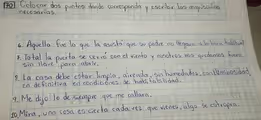 Colocar dos puntos donde corresponda y escribir las mayúsculas
necesarias.
6. Aquella fue la que la asustó que su padre no llegase a la hora habitual.
7. Total la puerta se cerró con el viento y nosotros nos quedamos fuera
sin llave para abrir.
8. La casa debe estar limpia, aireada, sin humedades, con iluminación
en definitiva en condiciones de habitabilidad.
9. Me dijo lo de siempre que me callara.
10. Mira, una cosa es cierta cada vez que vienes, algo se estropea.